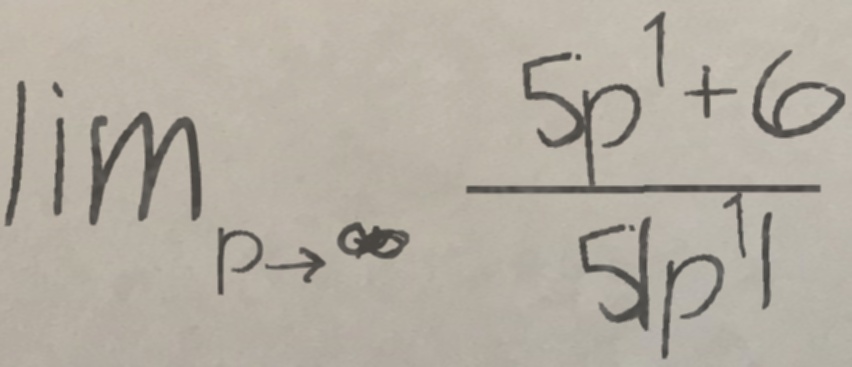 lim p→∞ (5p^1 + 6)/(5|p^1|)